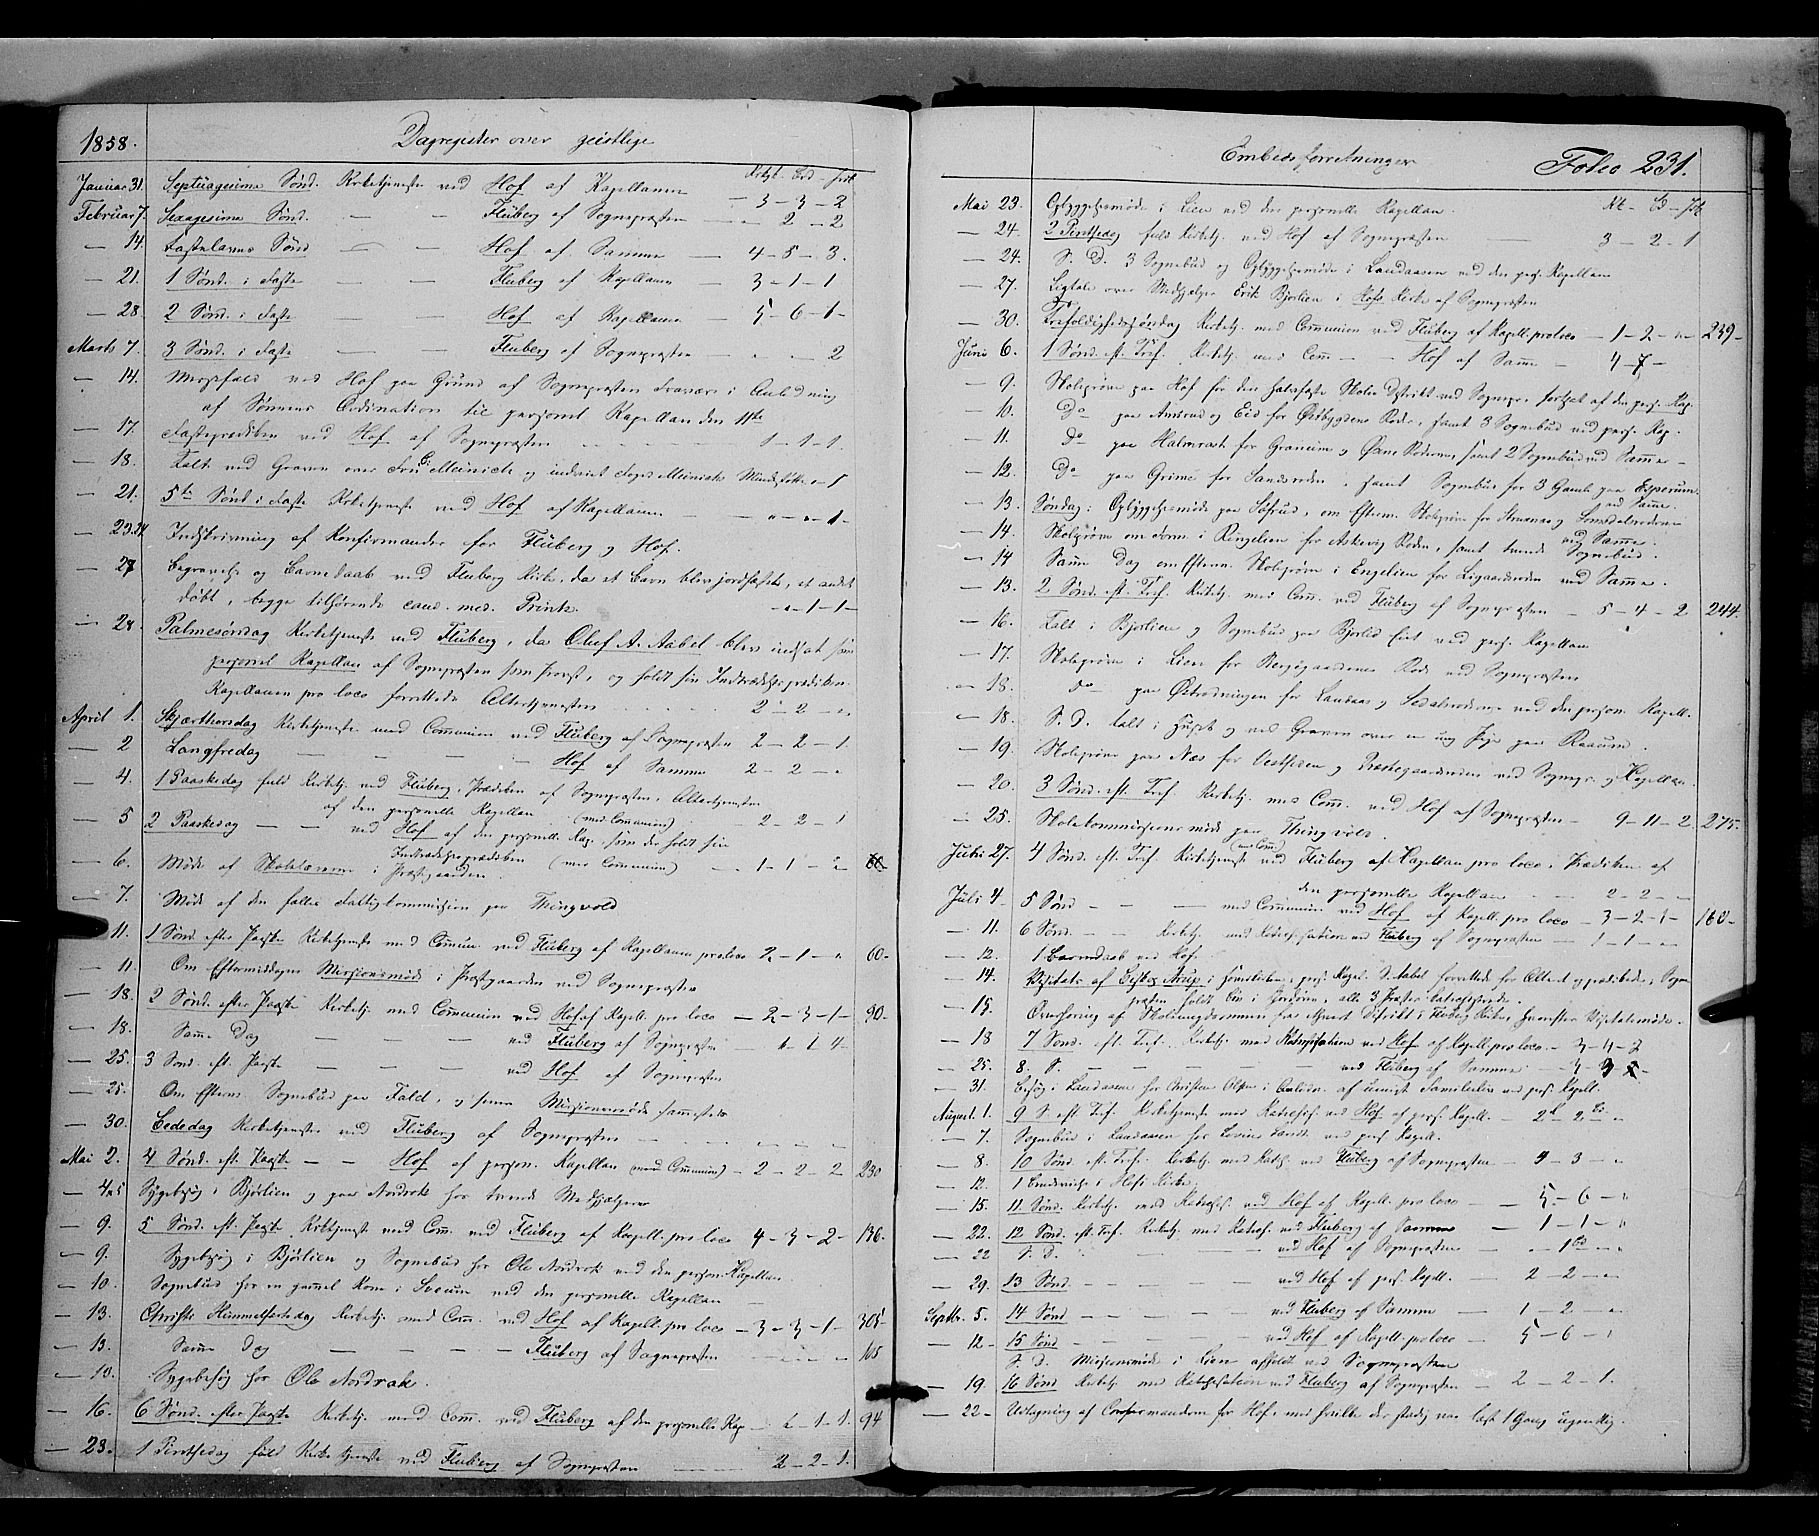 1858. Dagregister over geistlige
Januar 31. Septuagesima Sønd. Kirketjeneste ved Hof af Kapellanen 3 - 3 - 2
Februar 7. Sexagesima Sønd. — — Fluberg af Sognepræsten " 2 - 2
— 14. Fastelavns Sønd — — Hof af Samme — 4 - 5 - 3.
— 21. 1 Sønd. i Faste — — Fluberg af Kapellanen — 3 - 1 - 1
— 28. 2 Sønd. i Faste — — Hof af Kapellanen — 5 - 6 - 1 -
Marts 7. 3 Sønd. i Faste — — Fluberg af Sognepræsten " " 2
— 14. Messefald ved Hof paa Grund af Sognepræstens Fravær i Anledning
af Sønnens Ordination til personel Kapellan den 11te
— 17. Fasteprædiken ved Hof af Sognepræsten 1 - 1 - 1.
— 18. Talt ved Graven over Fru Meinich og indviet
— 21. 5te Sønd i Faste Kirketjeneste ved Hof af Kapellanen — " - " - 1 -
— 23.24. Indskrivning af Konfirmander for Fluberg og Hof.
— 27 Begravelse og Barnedaab ved Fluberg Kirke, da et Barn blev jordfæstet, et andet
døbt, begge tilhørende cand. med. Printz " - 1 - 1 -
— 28. Palmesøndag Kirketjeneste ved Fluberg, da Oluf A. Aabel blev indsat som
personel Kapellan af Sognepræsten som Provst, og holdt sin Indtrædelsesprædiken.
Kapellanen pro loco forrettede Altertjenesten 2 - 2 - "
April 1. Skjærthorsdag Kirketjeneste med Communion ved Fluberg af Sognepræsten 2 - 2 - 1.
— 2 Langfredag — — Hof af Samme 2 - 2 - "
— 4. 1 Paaskedag fuld Kirketj. ved Fluberg, Prædiken af Sognepræsten, Altertjenesten
af den personelle Kapellan (med Communion) 2 - 2 - 1
— 5 2 Paaskedag — — ved Hof af den personelle Kap. som der holdt sin
Indtrædelsesprædiken (med Communion) — 1 - 1 - 2
— 6. Møde af Skolelærerne i Præstgaarden.
— 7. Møde af den fælles Fattigkommission paa Thingvold
11. 1 Sønd efter Paaske Kirketjeneste med Commun ved Fluberg af Kapellanen pro loco 2 - 1 - " 60 -
— 11. Om Eftermiddagen Missionsmøde i Præstgaarden ved Sognepræsten
— 18. 2 Sønd. efter Paaske Kirketj. med Communion ved Hof af Kapell. pro loco — 2 - 3 - 1 - 90 -
— 18. Samme Dag ved Fluberg af Sognepræsten
— 25. 3 Sønd. eft. Paaske — — ved Hof af Sognepræsten
— 25. Om Efterm. Sognebud paa Fald, og senere Missionsmøde sammesteds
— 30. Bededag Kirketjeneste ved Fluberg af Sognepræsten — — —
Mai 2. 4 Sønd. eft. Paaske — — Hof af person. Kapellan (med Communion) — 2 - 2 - 2 230
— 4 & 5 Sygebesøg i Bjørlien og paa Nordrok hos tvende Medhjælpere
— 9. 5 Sønd. eft. Paaske Kirketjeneste med Com. ved Fluberg af Kapell. pro loco 4 - 3 - 2 - 136.
— 9. Sygebesøg i Bjørlien og Sognebud hos Ole Nordrok ved den person. Kapellan
— 10. Sognebud hos en gammel Kone i Sveum ved den personelle Kapellan —
— 13. Christi Himmelfartsdag Kirketj. med Com. ved Hof af Kapell. pro loco — 3 - 3 - 1 - 305
— 13. Samme Dag — — — Fluberg af Sognepræsten 165
— 13. Sygebesøg hos Ole Nordrok.
— 16. 6 Sønd. efter Paaske Kirketj. med Com. ved Fluberg af den personelle Kap — 2 - 1 - 1. 94
— 23. 1 Pintsedag fuld Kirketjeneste ved Fluberg af Sognepræsten — 2 - 2 - 1.
Embedsforretninger Folio 231.
Mai 23. Opbyggelsesmøde i Lien ved den personelle Kapellan.
— 24. 2 Pintsedag fuld Kirketj. ved Hof af Sognepræsten — 3 - 2 - 1
— 24. S. D. 3 Sognebud og Opbyggelsesmøde i Landaasen ved den pers. Kapellan
— 27. Ligtale over Medhjelper Erik Bjørlien i Hofs Kirke af Sognepræsten
— 30. Trefoldighedssøndag Kirketj. med Communion ved Fluberg af Kapell. pro loco — 1 - 2 - " - 239 -
Juni 6. 1 Sønd. eft. Tref. Kirketj. med Com — Hof af Samme — 4 - 7 -
— 9. Skoleprøve paa Hof for den halvfaste Skoles Distrikt ved Sognepr.
— 10. Do paa Amrud og Eid for Østbygdens Rode, samt 3 Sognebud ved pers. Kap.
— 11. Do paa Halmrast for Granum og Øvre Roderne, samt 2 Sognebud ved Samme —
— 12. Do paa Grime for Landsroden, samt Sognebud for 3 Gamle paa Esperum.
ved Samme.
— 13. Søndag: Opbyggelsesmøde paa om Efterm. Skoleprøve for
— 14. Skoleprøve om Form. i Ringelien for Askevig Roden, samt tvende Sognebud. ved Samme.
— 14 Samme Dag om Efterm. Skoleprøve i Engelien for Ligaardsroden ved Samme.
— 13. 2 Sønd. eft. Tref. Kirketj. med Com. ved Fluberg af Sognepræsten — 5 - 4 - 2. 244.
— 16. Talt i Bjørlien og Sognebud paa Bjørlid Eiet ved pers. Kapellan
— 17. Skoleprøve i Lien for Rode ved Sognepræsten
— 18. do paa Østrødningen for Landaas og ved den person. Kapell.
— 18. S. D. talt i Huset og ved Graven over en ung Pige paa Raaum.
— 19. Skoleprøve paa Næs for Vestsiden og Præstegaardsroden ved Sognepr. og Kapellan.
— 20. 3 Sønd. eft. Tref. Kirketj. med Com. ved Hof af Sognepræsten — 9 - 11 - 2. 275.
— 25. Skolekommissionsmøde paa Thingvold.
Juni 27. 4 Sønd. eft. Tref. Kirketjeneste (med Com.) ved Fluberg af Kapellan pro loco, Prædiken af
den personelle Kapellan — 2 - 2 - "
Juli 4. 5 Sønd — — med Communion ved Hof af Kapell. pro loco — 3 - 2 - 1 - 160 -
— 11. 6 Sønd. — Kirketj. med Katechisation ved Fluberg af Sognepræsten — 1 - 1 - "
— 12. 1 Barnedaab ved Hof.
— 14. Visitats af Biskop Arup i
præsten holdt alle 3 Præster katechiserede.
— 15. Overhøring af Skoleungdommen fra øvrigt Distrikt i Fluberg Kirke, hvorefter Visitatsmøde.
— 18 7 Sønd. eft. Tref. Kirketj. med Katechisation ved Hof af Kapell. pro loco — 3 - 4 - 2
— 25. 8. S. — — — ved Fluberg af Samme
— 31. Besøg i Landaasen hos Christen Olsen i Anledn. af uenigt Familieliv ved pers. Kapell.
August. 1. 9 S. eft. Tref. Kirketjeneste med Katechis. ved Hof af pers. Kapell. — 2 2
— 7. Sognebud i Landaasen hos ved pers. Kapell.
— 8. 10 Sønd. eft. Tref. Kirketj. med Katech. ved Fluberg af Sognepræsten — 4 - 3 - "
— 12. 1 Brudevielse i Hofs Kirke.
— 15. 11 Sønd. Kirketj. med Katechis. ved Hof af Kapell. pro loco — 5 - 6 - "
— 22. 12 Sønd. eft. Tref. Kirketj. med Katechis. ved Fluberg af Samme — 1 - 1 - "
— 22 S. D. — — ved Hof af Sognepræsten — " - 1 "
— 29. 13 Sønd. — — ved Hof af pers. Kapell. — 2 - 2 - "
Septbr. 5. 14 Sønd — — ved Fluberg af Samme — 1 - 2 - "
— 12 - 15 Sønd — — ved Hof af Kapell. pro loco — 5 - 6 - "
S. D. Missionsmøde i Lien afholdt ved Sognepræsten
— 19. 16 Sønd Kirketj. med Katechisation ved Fluberg af Sognepræsten — 2 - 2 - 1.
— 22 - Udtagning af Confirmanderne for Hof, med hvilke der stadig var læst 1 Gang ugentlig.